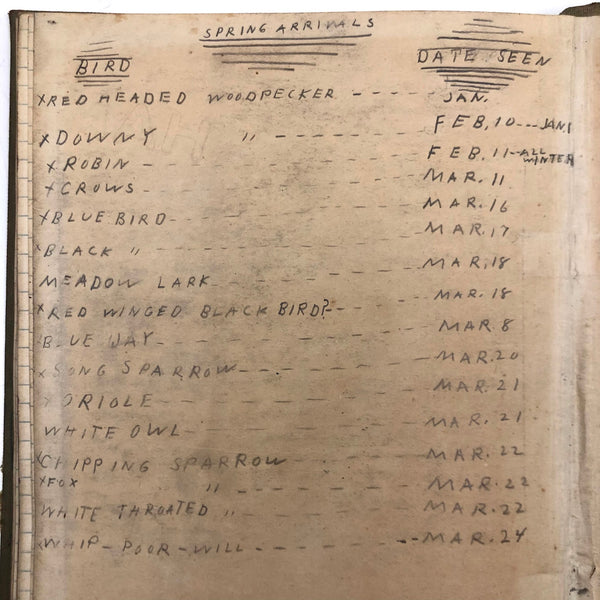 SPRING ARRIVALS
BIRD DATE SEEN
XRED HEADED WOODPECKER ---- JAN.
XDOWNY " ------ FEB. 10---JAN.1
XROBIN - - - - FEB. 11--ALL WINTER
XCROWS - - - - MAR. 11
XBLUE BIRD - - - - MAR. 16
XBLACK " - - - - MAR. 17
MEADOW LARK - - - - MAR. 18
XRED WINGED BLACK BIRD? - - - - MAR. 18
BLUE JAY - - - - MAR. 8
XSONG SPARROW - - - - MAR. 20
XORIOLE - - - - MAR. 21
WHITE OWL - - - - MAR. 21
CHIPPING SPARROW - - - - MAR. 22
XFOX " - - - - MAR. 22
WHITE THROATED " - - - - MAR. 22
WHIP-POOR-WILL - - - - MAR. 24